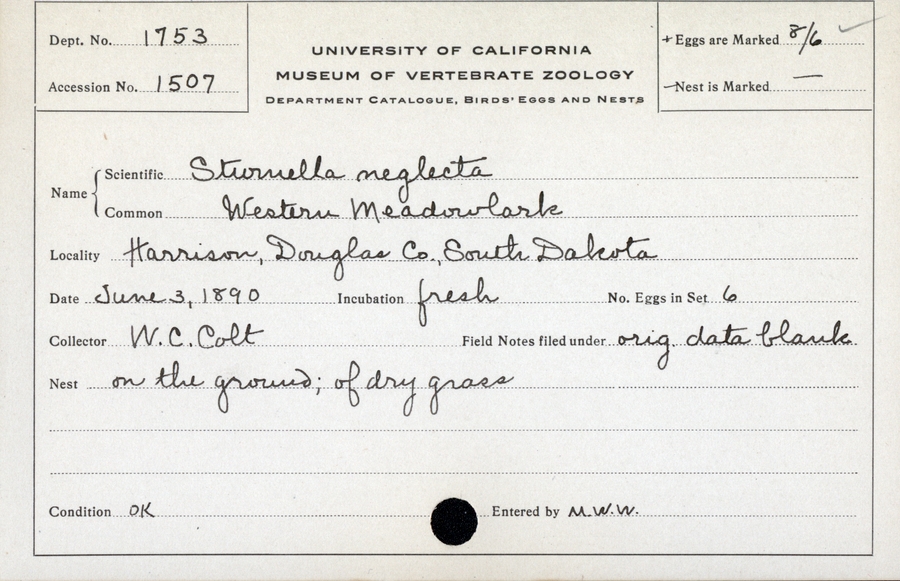 Dept. No. 1753
Accession No. 1507
UNIVERSITY OF CALIFORNIA
MUSEUM OF VERTEBRATE ZOOLOGY
DEPARTMENT CATALOGUE, BIRDS' EGGS AND NESTS
+ Eggs are Marked 8/6 ✓
— Nest is Marked —
Name
Scientific Sturnella neglecta
Common Western Meadowlark
Locality Harrison, Douglas Co., South Dakota
Date June 3, 1890 Incubation fresh No. Eggs in Set 6
Collector W. C. Colt Field Notes filed under orig. data blank
Nest on the ground; of dry grass
Condition OK Entered by M.W.W.